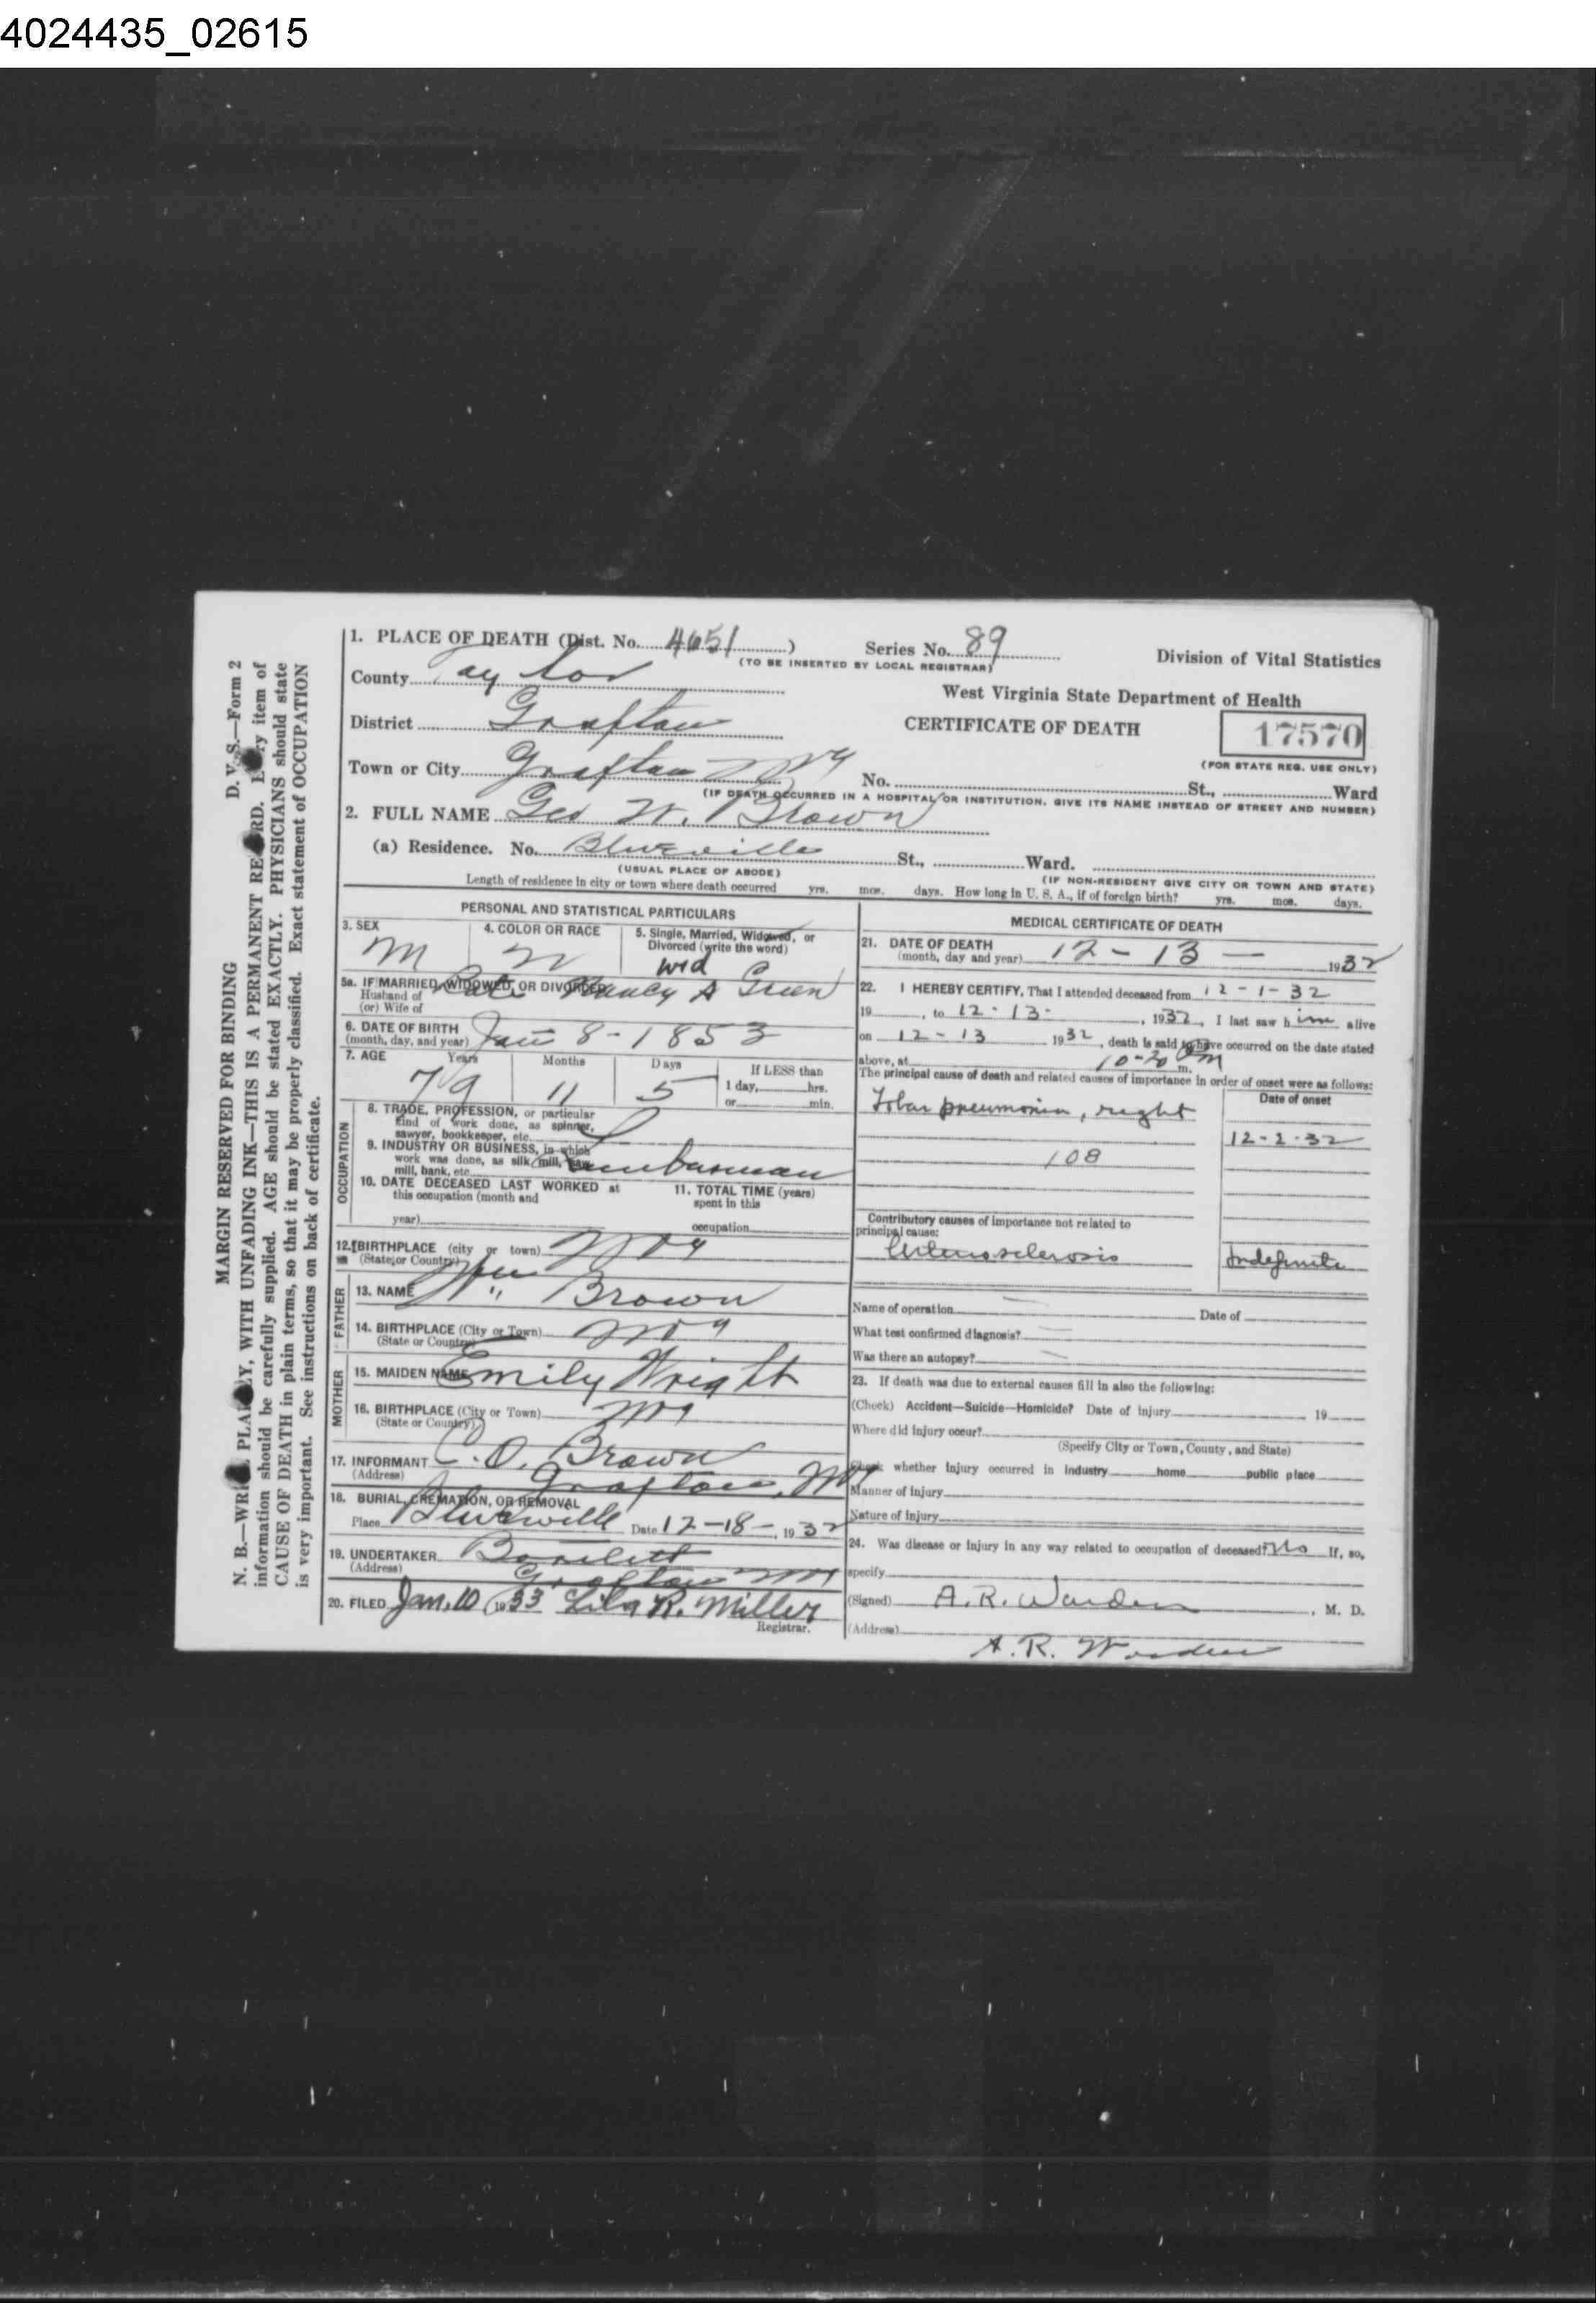 4024435_02615
MARGIN RESERVED FOR BINDING D. V. S.—Form 2
N. B.—WRITE PLAINLY, WITH UNFADING INK—THIS IS A PERMANENT RECORD. Every item of
information should be carefully supplied. AGE should be stated EXACTLY. PHYSICIANS should state
CAUSE OF DEATH in plain terms, so that it may be properly classified. Exact statement of OCCUPATION
is very important. See instructions on back of certificate.
1. PLACE OF DEATH (Dist. No. 4651) Series No. 89
(TO BE INSERTED BY LOCAL REGISTRAR)
Division of Vital Statistics
County Taylor
West Virginia State Department of Health
District Grafton
CERTIFICATE OF DEATH 17570
(FOR STATE REG. USE ONLY)
Town or City Grafton W Va No. St., Ward
(IF DEATH OCCURRED IN A HOSPITAL OR INSTITUTION, GIVE ITS NAME INSTEAD OF STREET AND NUMBER)
2. FULL NAME Geo W. Brown
(a) Residence. No. Blueville St., Ward.
(USUAL PLACE OF ABODE) (IF NON-RESIDENT GIVE CITY OR TOWN AND STATE)
Length of residence in city or town where death occurred yrs. mos. days. How long in U. S. A., if of foreign birth? yrs. mos. days.
PERSONAL AND STATISTICAL PARTICULARS
3. SEX M
4. COLOR OR RACE W
5. Single, Married, Widowed, or
Divorced (write the word)
Wid
5a. IF MARRIED, WIDOWED, OR DIVORCED
Husband of
(or) Wife of
Nancy A Green
6. DATE OF BIRTH
(month, day, and year) Jan 8-1853
7. AGE Years Months Days If LESS than
1 day, hrs.
or min.
79 11 5
OCCUPATION
8. TRADE, PROFESSION, or particular
kind of work done, as spinner,
sawyer, bookkeeper, etc.
9. INDUSTRY OR BUSINESS, in which
work was done, as silk mill, saw
mill, bank, etc. Lumberman
10. DATE DECEASED LAST WORKED at
this occupation (month and
year)
11. TOTAL TIME (years)
spent in this
occupation
12. BIRTHPLACE (city or town) W Va
(State or Country)
FATHER
13. NAME Wm Brown
14. BIRTHPLACE (City or Town) W Va
(State or Country)
MOTHER
15. MAIDEN NAME Emily Wright
16. BIRTHPLACE (City or Town) W Va
(State or Country)
17. INFORMANT C. O. Brown
(Address) Grafton, W Va
18. BURIAL, CREMATION, OR REMOVAL
Place Blueville Date 12-18-, 1932
19. UNDERTAKER Bartlett
(Address) Grafton W Va
20. FILED Jan. 10 1933 Lila R. Miller
Registrar.
MEDICAL CERTIFICATE OF DEATH
21. DATE OF DEATH
(month, day and year) 12-13- 1932
22. I HEREBY CERTIFY, That I attended deceased from 12-1-32
19 , to 12-13- , 1932, I last saw him alive
on 12-13 1932, death is said to have occurred on the date stated
above, at 10-20 m.
The principal cause of death and related causes of importance in order of onset were as follows:
Date of onset
Lobar pneumonia, right
12-2-32
108
Contributory causes of importance not related to
principal cause:
Arteriosclerosis Indefinite
Name of operation Date of
What test confirmed diagnosis?
Was there an autopsy?
23. If death was due to external causes fill in also the following:
(Check) Accident—Suicide—Homicide? Date of injury 19
Where did injury occur?
(Specify City or Town, County, and State)
Check whether injury occurred in industry home public place
Manner of injury
Nature of injury
24. Was disease or injury in any way related to occupation of deceased? No If, so,
specify
(Signed) A. R. Warden, M. D.
(Address)
A. R. Warden